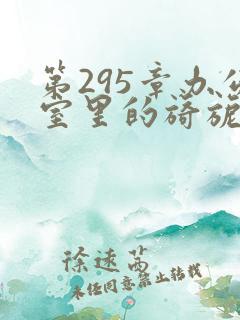 第295章办公
室里的旖旎
徐速茜
未经同意禁止转载